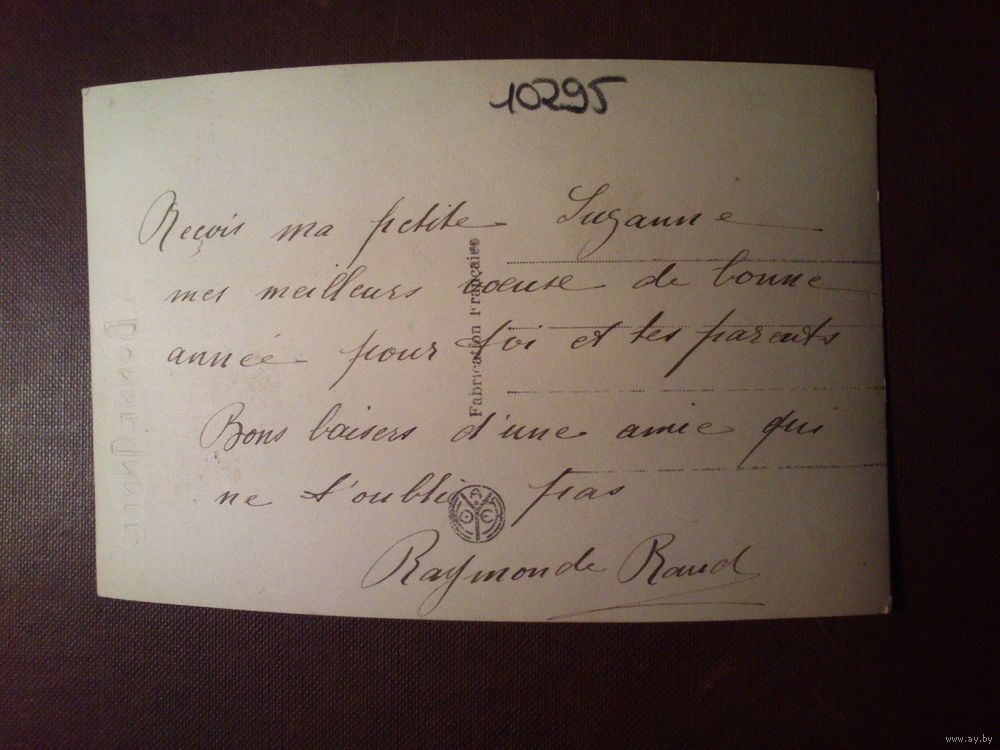 10295
Reçois ma petite Suzanne
mes meilleurs voeux de bonne
année pour toi et tes parents
Bons baisers d'une amie qui
ne t'oublie pas
Raymonde Raud
Fabrication Française
Bonne Année
www.ay.by